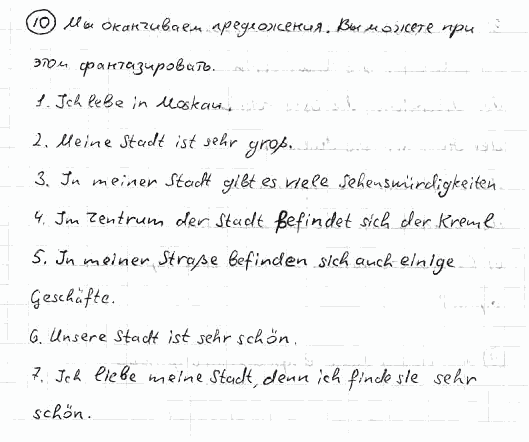 10 Мы оканчиваем предложения. Вы можете при
этом фантазировать.
1. Ich lebe in Moskau.
2. Meine Stadt ist sehr groß.
3. In meiner Stadt gibt es viele Sehenswürdigkeiten
4. Im Zentrum der Stadt befindet sich der Kreml.
5. In meiner Straße befinden sich auch einige
Geschäfte.
6. Unsere Stadt ist sehr schön.
7. Ich liebe meine Stadt, denn ich finde sie sehr
schön.